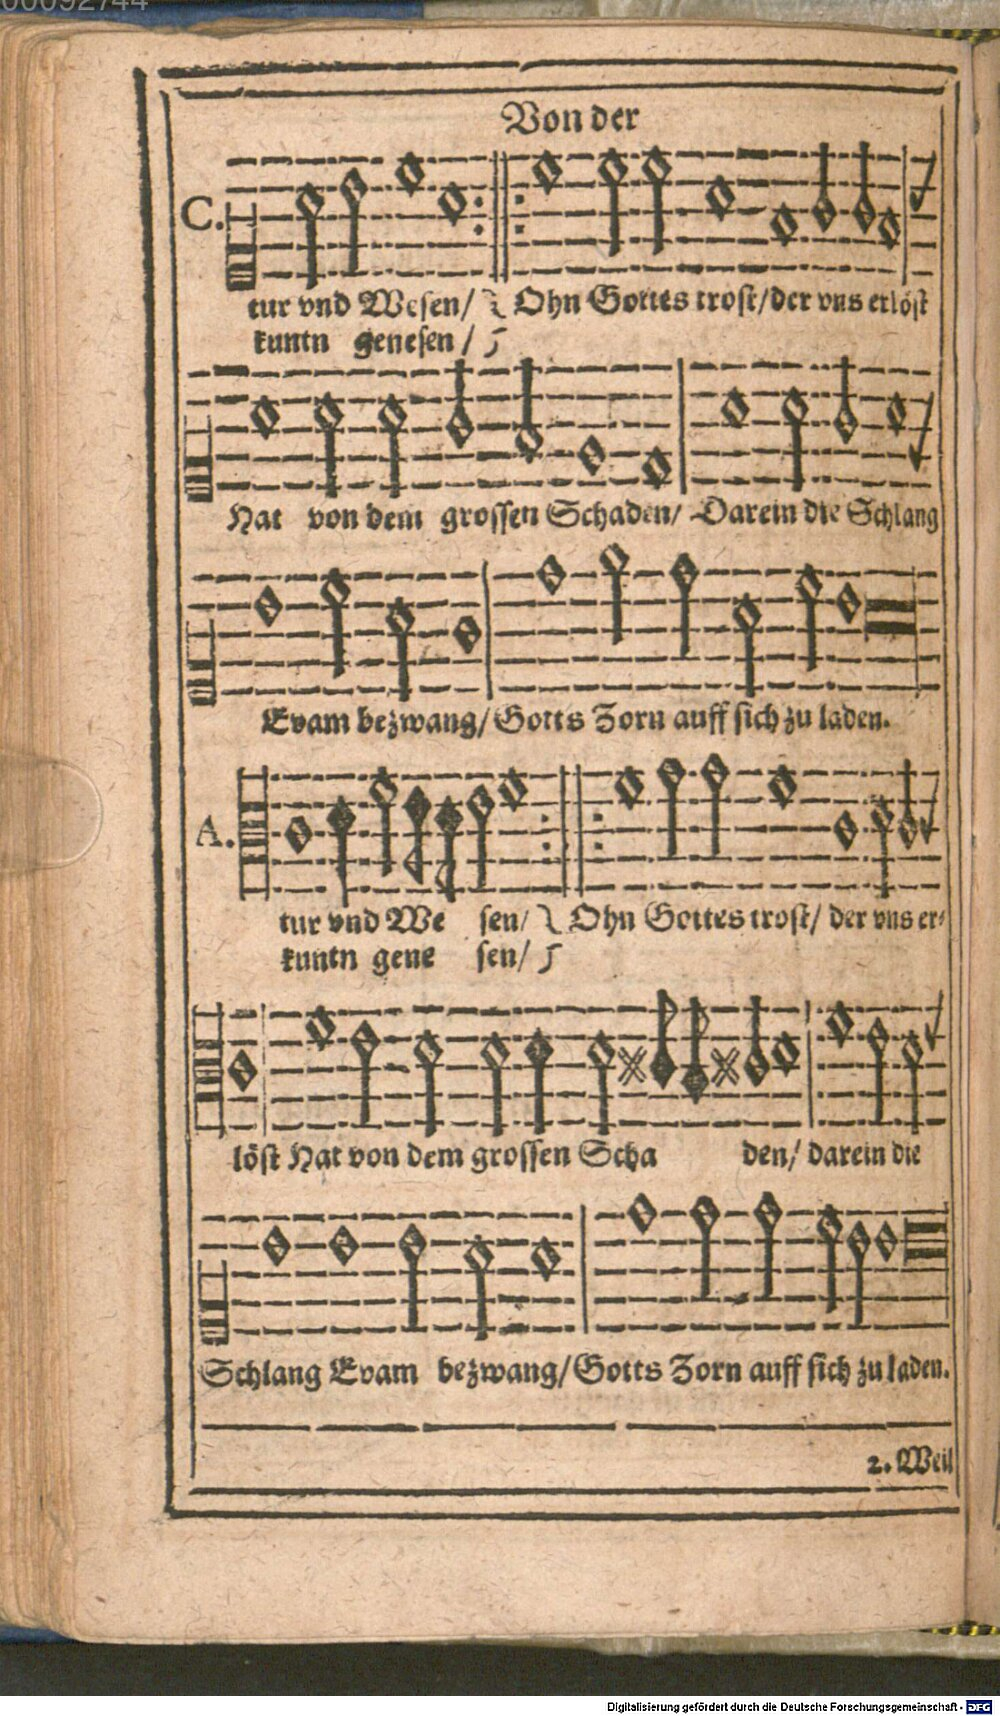 00092744
Von der
C.
tur vnd Wesen/ Ohn Gottes trost/der vns erlöst
kuntn genesen /
Hat von dem grossen Schaden/ Darein die Schlang
Evam bezwang/ Gotts Zorn auff sich zu laden.
A.
tur vnd We sen/ Ohn Gottes trost/ der vns er⸗
kuntn gene sen/
löst Hat von dem grossen Scha den/ darein die
Schlang Evam bezwang/ Gotts Zorn auff sich zu laden.
2. Weil
Digitalisierung gefördert durch die Deutsche Forschungsgemeinschaft - DFG